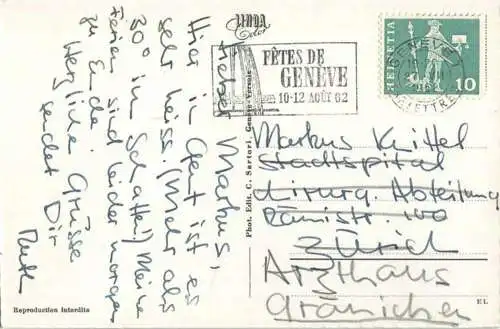 Lieber Markus,
Hier in Genf ist es
sehr heiss. (Mehr als
30° im Schatten!) Meine
Ferien sind leider morgen
zu Ende.
Herzliche Grüsse
sendet Dir
Ruth
LINDA
Color
FÊTES DE
GENÈVE
10-12 AOÛT 62
GENÈVE 1
HELVETIA
10
Phot. Edit. C. Sartori, Genève-Vernets
Markus Knittel
Stadtspital
Chirurg. Abteilung
Rämistr. 100
Zürich
Arzthaus
Gränichen
Reproduction interdite
EL